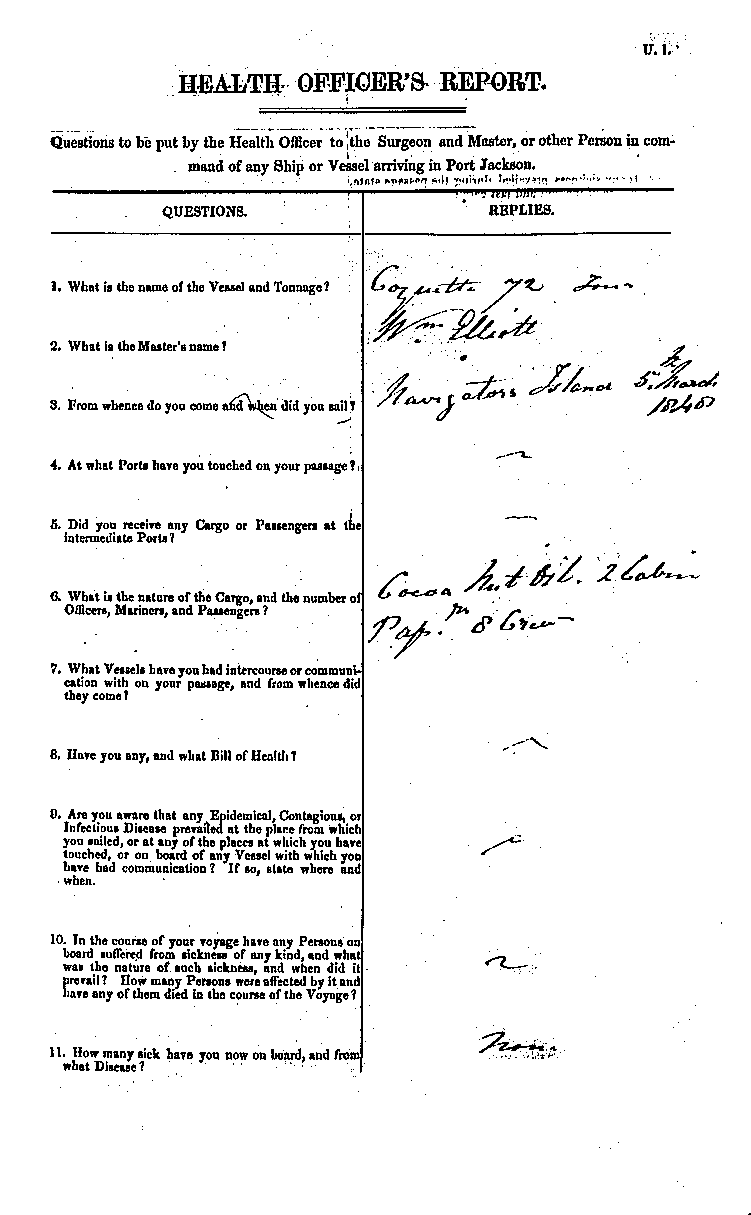 U. 1.
HEALTH OFFICER'S REPORT.
Questions to be put by the Health Officer to the Surgeon and Master, or other Person in com-
mand of any Ship or Vessel arriving in Port Jackson.
QUESTIONS.
REPLIES.
1. What is the name of the Vessel and Tonnage?
Coquette 72 Tons
2. What is the Master's name?
Wm Elliott
3. From whence do you come and when did you sail?
Navigators Island 5th March
1840
4. At what Ports have you touched on your passage?
~
5. Did you receive any Cargo or Passengers at the
intermediate Ports?
—
6. What is the nature of the Cargo, and the number of
Officers, Mariners, and Passengers?
Cocoa Nut Oil. 2 Cabin
8 Crew
7. What Vessels have you had intercourse or communi-
cation with on your passage, and from whence did
they come?
8. Have you any, and what Bill of Health?
9. Are you aware that any Epidemical, Contagious, or
Infectious Disease prevailed at the place from which
you sailed, or at any of the places at which you have
touched, or on board of any Vessel with which you
have had communication? If so, state where and
when.
10. In the course of your voyage have any Persons on
board suffered from sickness of any kind, and what
was the nature of such sickness, and when did it
prevail? How many Persons were affected by it and
have any of them died in the course of the Voyage?
~
11. How many sick have you now on board, and from
what Disease?
None